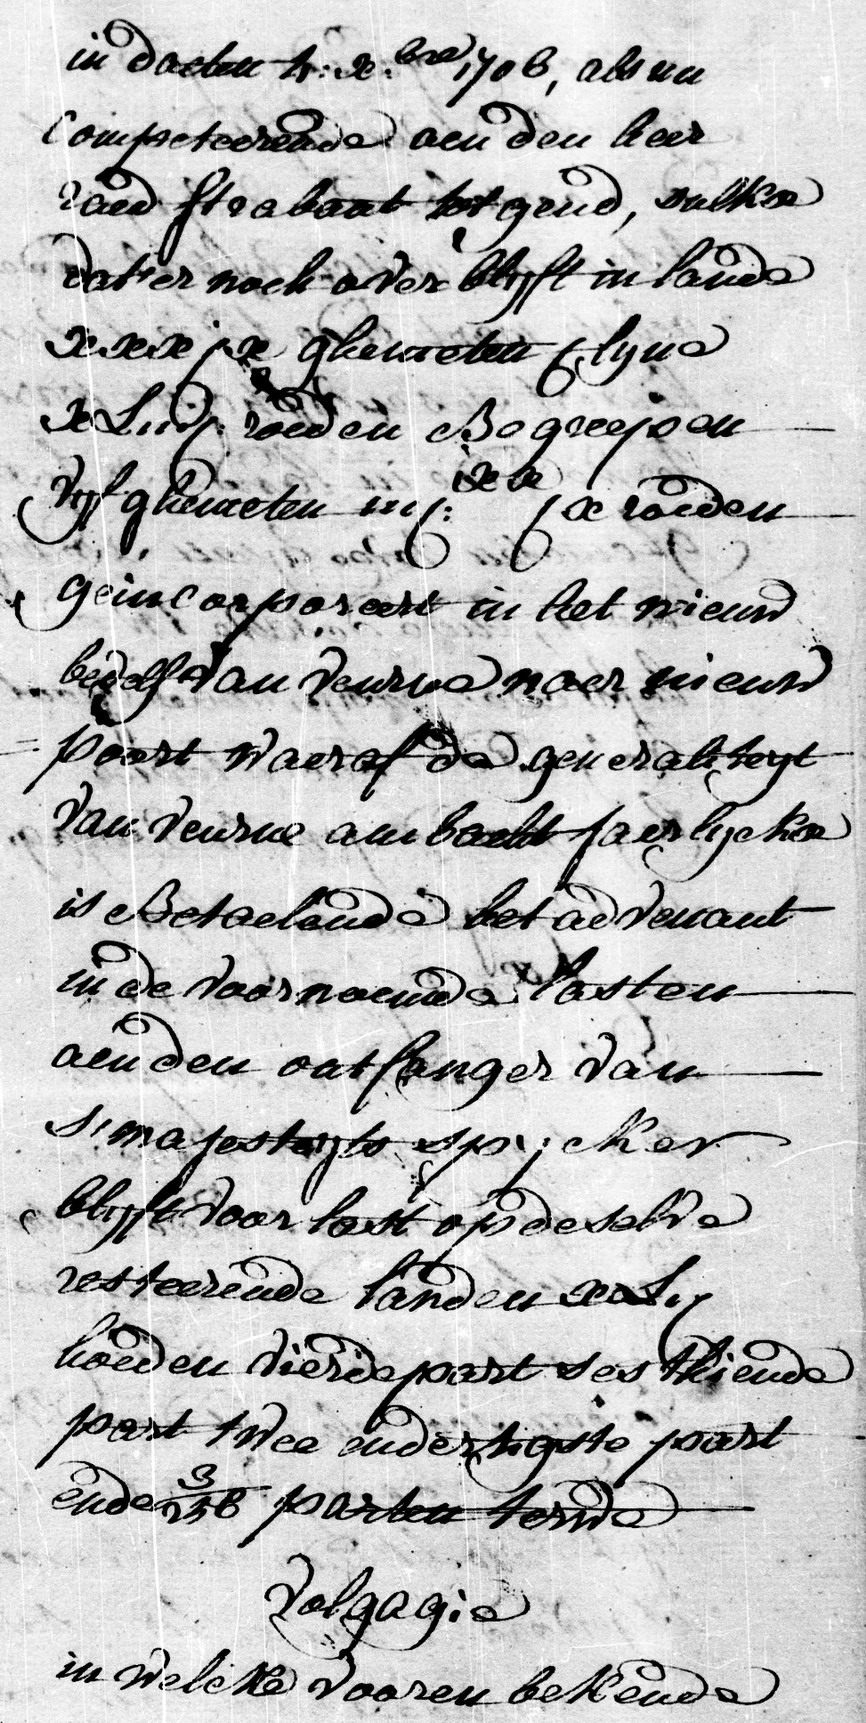 in daeten 4: x:bre 1706, als nu
competeerende aen den heer
raed Strabant tot gend, sulkx
dat'er noch over blyft in lande
xxxjx ghemeten lyne
roeden Begrepen
vyf ghemeten iiij: roeden
geincorporeert in het nieuw
bedelf van Veurne naer nieuw
poort waeraf de generaliteyt
van veurne ambacht jaerlyckx
is Betaelende het advenant
in de voornoemde lasten
aen den ontfanger van
s'majesteyts spycker
blyft voor last op de selve
resteerende landen
hoeden vierdepart sesthiende
part twee endertigste part
ende 3/256 parten terwe
Volgagie
in welcke vooren bekende